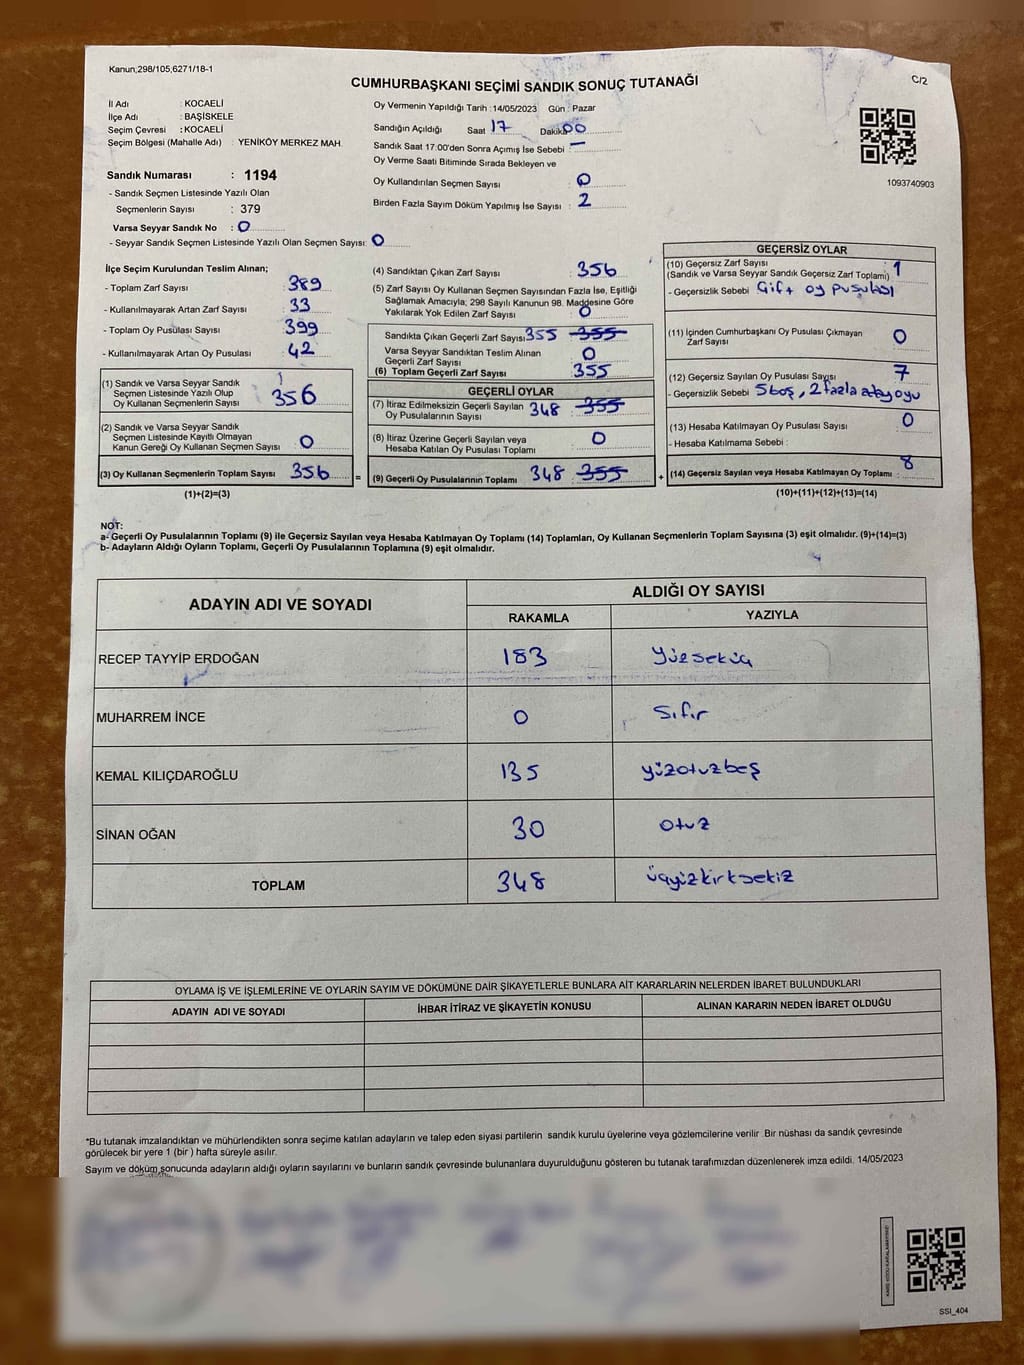 Kanun,298/105,6271/18-1
C/2
CUMHURBAŞKANI SEÇİMİ SANDIK SONUÇ TUTANAĞI
İl Adı : KOCAELİ
İlçe Adı : BAŞİSKELE
Seçim Çevresi : KOCAELİ
Seçim Bölgesi (Mahalle Adı) : YENİKÖY MERKEZ MAH.
Sandık Numarası : 1194
- Sandık Seçmen Listesinde Yazılı Olan
Seçmenlerin Sayısı : 379
Varsa Seyyar Sandık No : 0
- Seyyar Sandık Seçmen Listesinde Yazılı Olan Seçmen Sayısı: 0
Oy Vermenin Yapıldığı Tarih : 14/05/2023 Gün : Pazar
Sandığın Açıldığı Saat 17 Dakika 00
Sandık Saat 17:00'den Sonra Açımış İse Sebebi : —
Oy Verme Saati Bitiminde Sırada Bekleyen ve
Oy Kullandırılan Seçmen Sayısı : 0
Birden Fazla Sayım Döküm Yapılmış İse Sayısı : 2
1093740903
İlçe Seçim Kurulundan Teslim Alınan;
- Toplam Zarf Sayısı : 389
- Kullanılmayarak Artan Zarf Sayısı : 33
- Toplam Oy Pusulası Sayısı : 399
- Kullanılmayarak Artan Oy Pusulası : 42
(1) Sandık ve Varsa Seyyar Sandık
Seçmen Listesinde Yazılı Olup
Oy Kullanan Seçmenlerin Sayısı : 356
(2) Sandık ve Varsa Seyyar Sandık
Seçmen Listesinde Kayıtlı Olmayan
Kanun Gereği Oy Kullanan Seçmen Sayısı : 0
(3) Oy Kullanan Seçmenlerin Toplam Sayısı : 356
(1)+(2)=(3)
=
(4) Sandıktan Çıkan Zarf Sayısı : 356
(5) Zarf Sayısı Oy Kullanan Seçmen Sayısından Fazla İse, Eşitliği
Sağlamak Amacıyla; 298 Sayılı Kanunun 98. Maddesine Göre
Yakılarak Yok Edilen Zarf Sayısı : 0
Sandıkta Çıkan Geçerli Zarf Sayısı : 355 355
Varsa Seyyar Sandıktan Teslim Alınan
Geçerli Zarf Sayısı : 0
(6) Toplam Geçerli Zarf Sayısı : 355
GEÇERLİ OYLAR
(7) İtiraz Edilmeksizin Geçerli Sayılan
Oy Pusulalarının Sayısı : 348 355
(8) İtiraz Üzerine Geçerli Sayılan veya
Hesaba Katılan Oy Pusulaları Toplamı : 0
(9) Geçerli Oy Pusulalarının Toplamı : 348 355
+
GEÇERSİZ OYLAR
(10) Geçersiz Zarf Sayısı : 1
(Sandık ve Varsa Seyyar Sandık Geçersiz Zarf Toplamı)
- Geçersizlik Sebebi : Çift oy pusulası
(11) İçinden Cumhurbaşkanı Oy Pusulası Çıkmayan : 0
Zarf Sayısı
(12) Geçersiz Sayılan Oy Pusulası Sayısı : 7
- Geçersizlik Sebebi 5 boş, 2 fazla aday oyu
(13) Hesaba Katılmayan Oy Pusulası Sayısı : 0
- Hesaba Katılmama Sebebi :
(14) Geçersiz Sayılan veya Hesaba Katılmayan Oy Toplamı : 8
(10)+(11)+(12)+(13)=(14)
NOT:
a- Geçerli Oy Pusulalarının Toplamı (9) ile Geçersiz Sayılan veya Hesaba Katılmayan Oy Toplamı (14) Toplamları, Oy Kullanan Seçmenlerin Toplam Sayısına (3) eşit olmalıdır. (9)+(14)=(3)
b- Adayların Aldığı Oyların Toplamı, Geçerli Oy Pusulalarının Toplamına (9) eşit olmalıdır.
ADAYIN ADI VE SOYADI
ALDIĞI OY SAYISI
RAKAMLA YAZIYLA
RECEP TAYYİP ERDOĞAN 183 Yüzseküç
MUHARREM İNCE 0 Sıfır
KEMAL KILIÇDAROĞLU 135 yüzotuzbeş
SİNAN OĞAN 30 otuz
TOPLAM 348 üçyüzkırksekiz
OYLAMA İŞ VE İŞLEMLERİNE VE OYLARIN SAYIM VE DÖKÜMÜNE DAİR ŞİKAYETLERLE BUNLARA AİT KARARLARIN NELERDEN İBARET BULUNDUKLARI
ADAYIN ADI VE SOYADI İHBAR İTİRAZ VE ŞİKAYETİN KONUSU ALINAN KARARIN NEDEN İBARET OLDUĞU
*Bu tutanak imzalandıktan ve mühürlendikten sonra seçime katılan adayların ve talep eden siyasi partilerin sandık kurulu üyelerine veya gözlemcilerine verilir .Bir nüshası da sandık çevresinde
görülecek bir yere 1 (bir ) hafta süreyle asılır.
Sayım ve döküm sonucunda adayların aldığı oyların sayılarını ve bunların sandık çevresinde bulunanlara duyurulduğunu gösteren bu tutanak tarafımızdan düzenlenerek imza edildi. 14/05/2023
SSI_404